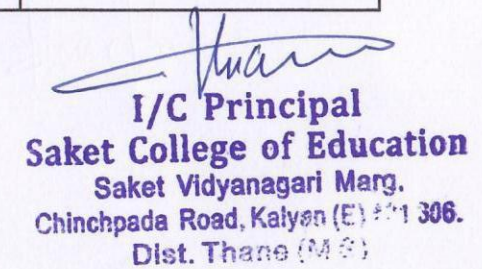 I/C Principal
Saket College of Education
Saket Vidyanagari Marg.
Chinchpada Road, Kalyan (E) 421 306.
Dist. Thane (M S)